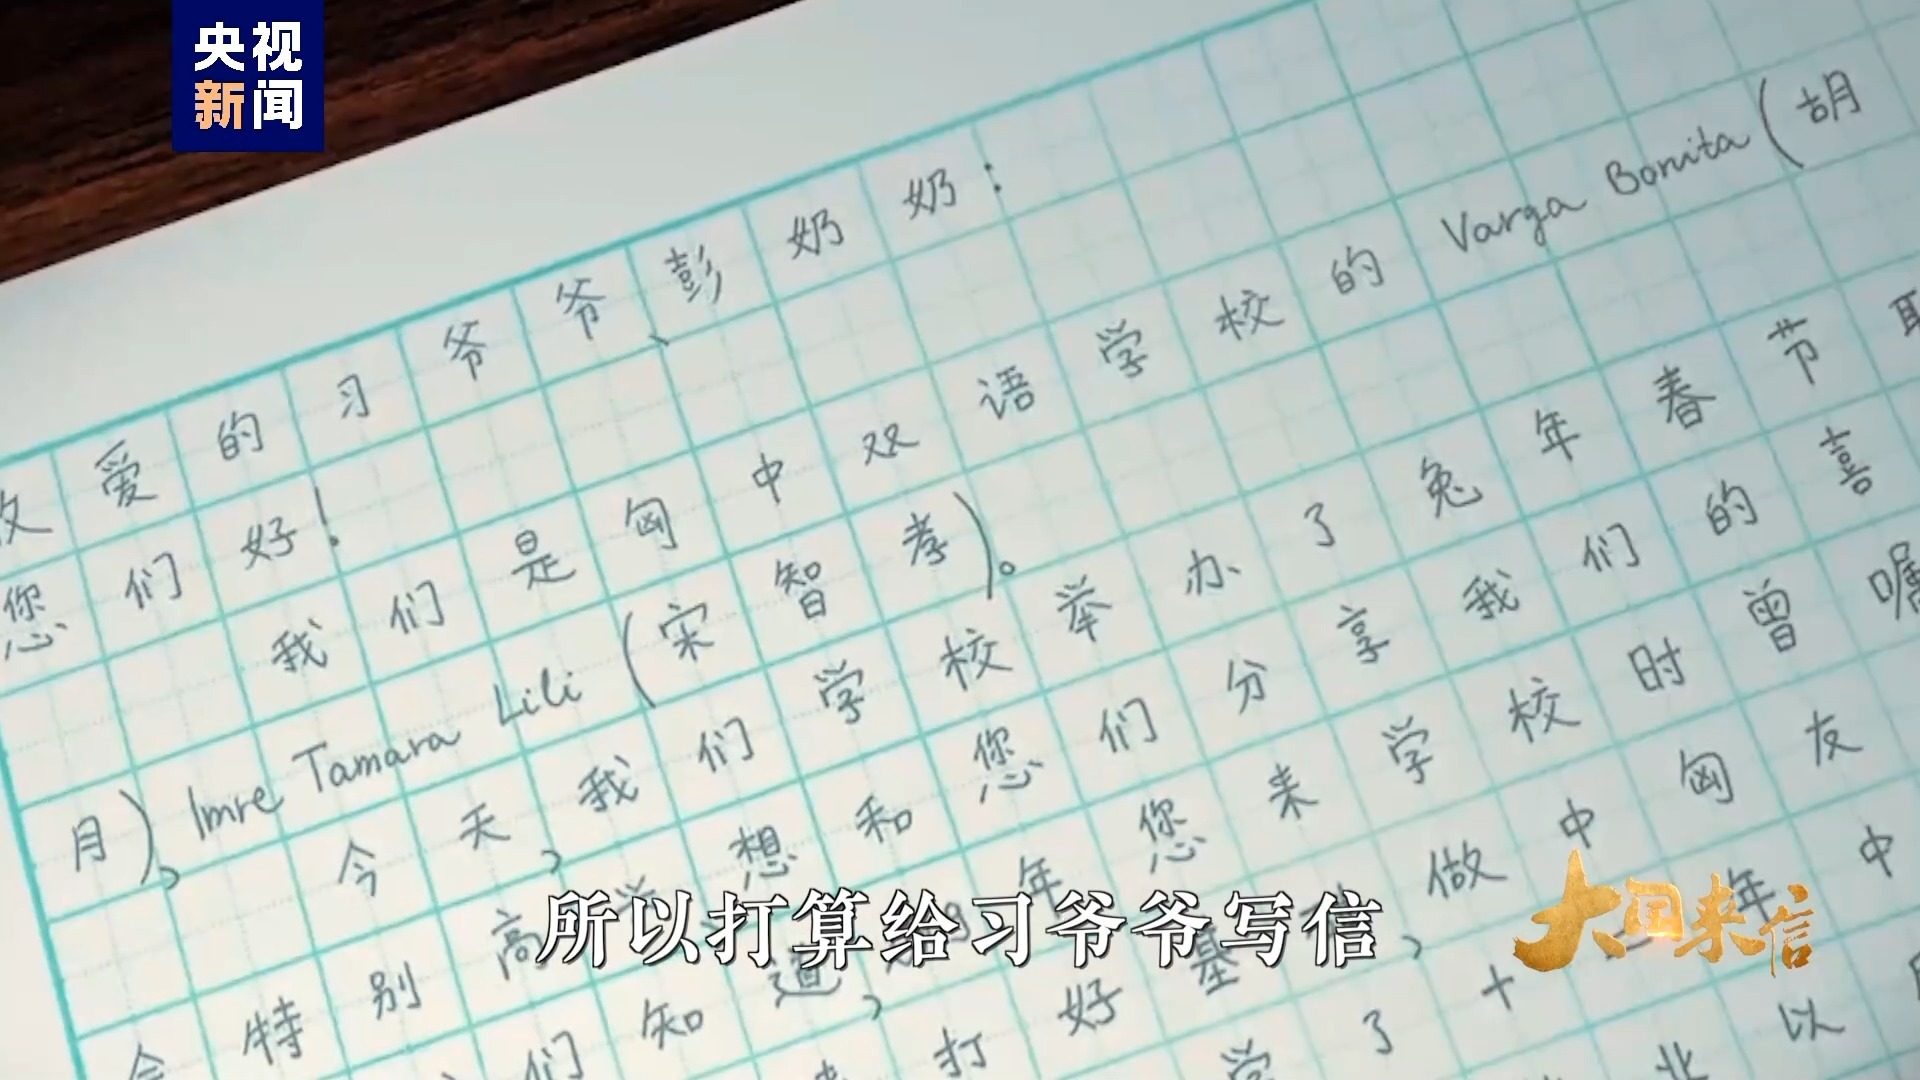 央视
新闻
爱的习爷爷、彭奶奶：
您们好！
我们是匈中双语学校的 Varga Bonita（胡
月）、Imre Tamara Lili（宋智孝）。
今天，我们学校举办了兔年春节
会特别高 想和您们分享我们的喜
们知道， 年您来学校时曾嘱
打好基 ，做中匈友
学了十 年中
以
所以打算给习爷爷写信
大国来信